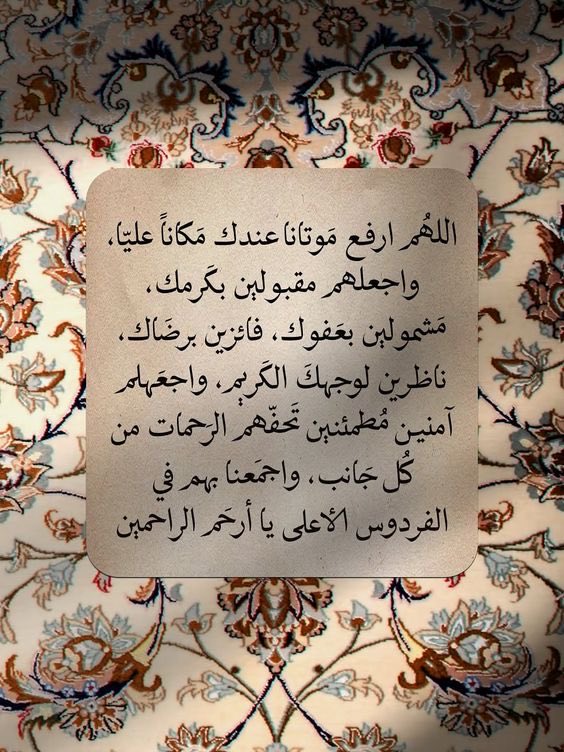 اللهُم ارفع مَوتانا عندك مَكاناً عليّا،
واجعلهم مقبولين بكَرمك،
مَشمولين بعَفوك، فائزين برضَاك،
ناظرين لوجهكَ الكَريم، واجعَهلم
آمنين مُطمئنين تَحفّهم الرَحمات من
كُل جَانب، واجمَعنا بهم في
الفردوس الأعلى يا أرحَم الراحمين